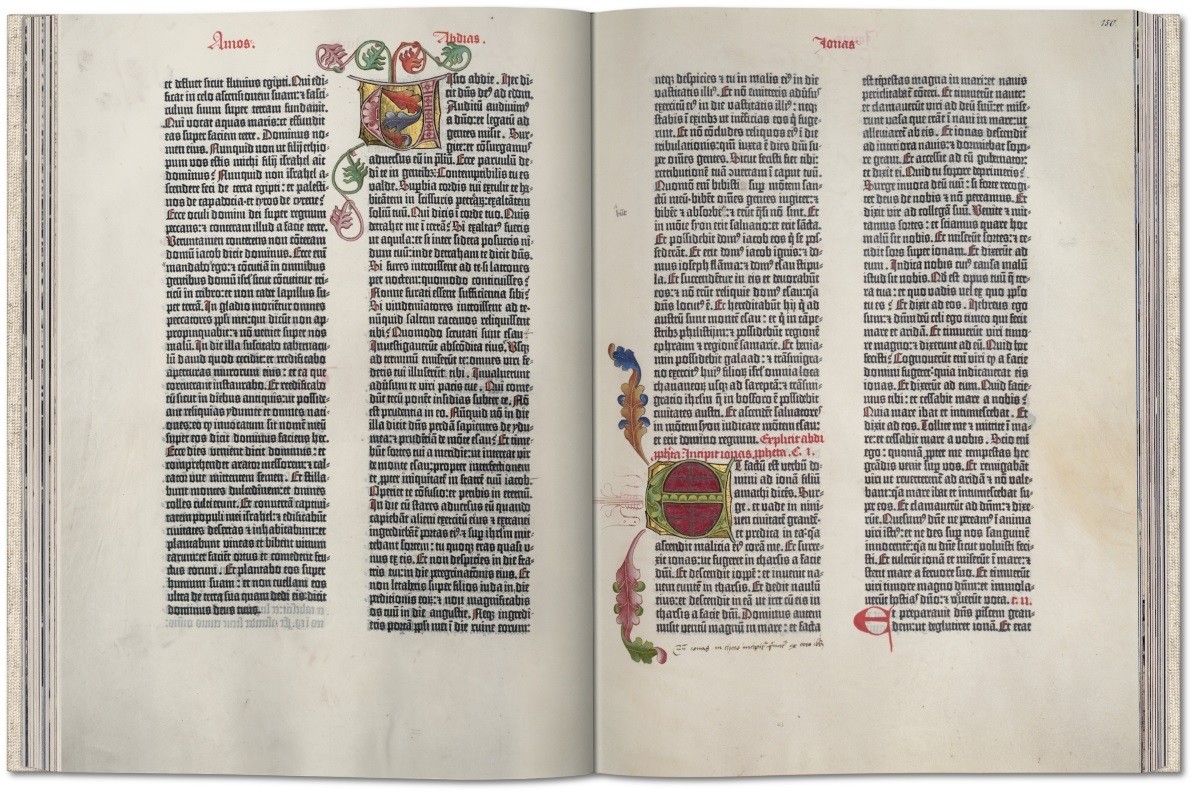 Amos.
et defluet sicut fluvius egipti. Qui edi-
ficat in celo ascensionem suam: et fasci-
culum suum super terram fundavit.
Qui vocat aquas maris: et effundit
eas super faciem terre. Dominus no-
men eius. Nunquid non ut filij ethio-
pum vos estis michi filij israhel ait
dominus? Nunquid non israhel a-
scendere feci de terra egipti: et palesti-
nos de capadocia et syros de cyrene?
Ecce oculi domini dei super regnum
peccans: et conteram illud a facie terre.
Veruntamen conterens non conteram
domum iacob dicit dominus. Ecce em̄
mandabo ego: et cōcutiā in omnibus
gentibus domum isrl̄ sicut cōcutitur tri-
ticū in cribro: et non cadet lapillus su-
per terrā. In gladio moriētur omnes
peccatores ppl̄i mei: qui dicūt non ap-
propinquabit: et nō veniet super nos
malū. In die illa suscitabo tabernacu-
lū david quod cecidit: et reedificabo
aperturas murorum eius: et ea que
corruerant instaurabo. Et reedificabo
eū sicut in diebus antiquis: ut posside-
ant reliquias ydumee et omnes naci-
ones: eo q invocatum sit nomē meū
super eos dicit dominus faciens hec.
Ecce dies veniunt dicit dominus: et
comprehendet arator messorem: et cal-
cator uve mittentem semen. Et stilla-
bunt montes dulcedinem: et omnes
colles culti erunt. Et convertā captivi-
tatem populi mei israhel: et edificabūt
civitates desertas et inhabitabunt: et
plantabunt vineas et bibent vinum
earum: et faciēt ortos et comedent fru-
ctus eorum. Et plantabo eos super
humum suam: et non evellam eos
ultra de terra sua quam dedi eis dicit
dominus deus tuus.
Abdias.
Visio abdie. Hec di-
cit dn̄s de⁹ ad edom.
Auditū audivim⁹
a dn̄o: et legatū ad
gentes misit. Sur-
gite: et cōsurgamus
adversus eū in p̄liū. Ecce parvulū de-
di te in gentib⁹: Contemptibilis tu es
valde. Suphia cordis tui extulit te: ha-
bitātem in scissuris petrarū: exaltātem
soliū tuū. Qui dicis ī corde tuo. Quis
detrahet me ī terrā? Si exaltat⁹ fueris
ut aquila: et si inter sidera posueris ni-
dum tuū: inde detraham te dicit dn̄s.
Si fures introissent ad te: si latrones
per noctem: quomodo conticuisses?
Nonne furati essent sufficientia sibi?
Si vindemiatores introissent ad te:
nūquid saltem racemos reliquissent
tibi? Quomodo scrutati sunt esau:
Investigaverūt abscōdita eius? Usqȝ
ad terminū emiserūt te: omnes viri fe-
deris tui illuserūt tibi. Invaluerunt
adūsum te viri pacis tue. Qui come-
dūt tecū ponēt insidias subter te. Nō
est prudencia in eo. Nūquid nō in die
illa dicit dn̄s perdā sapientes de ydu-
mea: et prudētiā de mōte esau? Et time-
būt fortes tui a meridie: ut intereat vir
de monte esau: propter interfectionem
et propter iniquitatē in fratrē tuū iacob.
Operiet te cōfusio: et peribis in eternū.
In die cū stares adversus eū quando
capiebāt alieni exercitū eius et extranei
ingrediebāt portas ei⁹ et sup ihrl̄m mit-
tebant sortem: tu quoqȝ eras quasi u-
nus ex eis. Et non despicies in die fra-
tris tui: in die peregrinationis eius. Et
non letaberis super filios iuda in die
perditionis eorū: et non magnificabis
os tuū in die angustie. Neqȝ ingredi-
eris portā ppl̄i mei ī die ruine eorum:
Ionas
150
neqȝ despicies et tu in malis ei⁹ in die
vastitatis illi⁹. Et nō emitteris adūsus
exercitū ei⁹ in die vastitatis illi⁹: neqȝ
stabis ī exitib⁹ ut īterficias eos q̄ fuge-
rint. Et nō cōcludes reliquos ei⁹ ī die
tribulationis: qm̄ iuxta ē dies dn̄i su-
per om̄es gentes. Sicut fecisti fiet tibi:
retributionē tuā cōvertam ī caput tuū.
Quomō em̄ bibistis sup mōtem san-
ctū meū: bibēt om̄es gentes iugiter: et
bibēt et absorbebūt: et erūt q̄si nō sint. Et
in mōte syon erit salvatio: et erit sāctᵃ.
Et possidebit dom⁹ iacob eos q̄ se pos-
sederāt. Et erit dom⁹ iacob ignis: et do-
mus ioseph flāma: et dom⁹ esau stipu-
la. Et succendētur in eis et devorabūt
eos: et nō erūt reliquie dom⁹ esau: q̄a
dn̄s locut⁹ ē. Et hereditabūt hij q̄ ad
austrū sunt montē esau: et q̄ in cāpe-
strib⁹ philistijm: et possidebūt regionē
effraym et regionē samarie. Et benia-
min possidebit galaad: et trāsmigra-
tio exercit⁹ hui⁹ filioȝ isrl̄ omnia loca
chananeoȝ usqȝ ad sareptā: et trāsmi-
gracio ihrl̄m q̄ in bosforo ē possidebit
civitates austri. Et ascendēt salvatores
in mōtem syon iudicare mōtem esau:
et erit domino regnum. Explicit abdias
ppheta. Incipit ionas ppheta. C. I.
Et factū est verbū do-
mini ad ionā filiū
amathi dicēs. Sur-
ge et vade in nini-
ven civitatē grandē:
et predica in ea: q̄a
ascendit malicia ei⁹ corā me. Et surre-
xit ionas: ut fugeret in tharsis a facie
dn̄i. Et descendit ioppē: et invenit na-
vem euntē in tharsis. Et dedit naulū
eius: et descendit in eā ut iret cū eis in
tharsis a facie dn̄i. Dominus autem
misit ventū magnū in mare: et facta
est tēpestas magna in mari: et navis
periclitabat̄ cōteri. Et timuerūt naute:
et clamaverūt viri ad deū suū: et mise-
runt vasa que erāt ī navi in mare: ut
alleviaret̄ ab eis. Et ionas descendit
ad interiora navis: et dormiebat sopo-
re gravi. Et accessit ad eū gubernator:
et dixit ei. Quid tu sopore deprimeris?
Surge invoca deū tuū: si forte recogi-
tet deus de nobis et nō pereamus. Et
dixit vir ad collegā suū. Venite et mit-
tamus sortes: et sciamus quare hoc
malū sit nobis. Et miserūt sortes: et ce-
cidit sors super ionam. Et dixerūt ad
eum. Indica nobis cui⁹ causa malū
istud sit nobis. Qd est opus tuū q̄ ter-
ra tua: et quo vadis vel ex quo pplo
tu es? Et dixit ad eos. Hebreus ego
sum: et dn̄m deū celi ego timeo qui fecit
mare et aridā. Et timuerūt viri timo-
re magno: et dixerunt ad eū. Quid hoc
fecisti? Cognoverūt em̄ viri q̄ a facie
domini fugeret: quia indicaverat eis
ionas. Et dixerūt ad eum. Quid facie-
mus tibi: et cessabit mare a nobis?
Quia mare ibat et intumescebat. Et
dixit ad eos. Tollite me et mittite ī ma-
re: et cessabit mare a vobis. Scio em̄
ego: quoniā ppter me tempestas hec
grādis venit sup vos. Et remigabāt
viri ut reverterent̄ ad aridā et nō vale-
bant: q̄a mare ibat et intumescebat su-
per eos. Et clamaverūt ad dn̄m: et dixe-
rūt. Quesum⁹ dn̄e ne pereamus ī anima
viri isti⁹: et ne des sup nos sanguinē
innocentē: q̄a tu dn̄e sicut voluisti feci-
sti. Et tulerūt ionā et miserūt ī mare: et
stetit mare a fervore suo. Et timuerūt
viri timore magno dn̄m: et immola-
verūt hostias dn̄o: et voverūt vota. C. II
Et preparavit dn̄s piscem gran-
dem: ut deglutiret ionā. Et erat